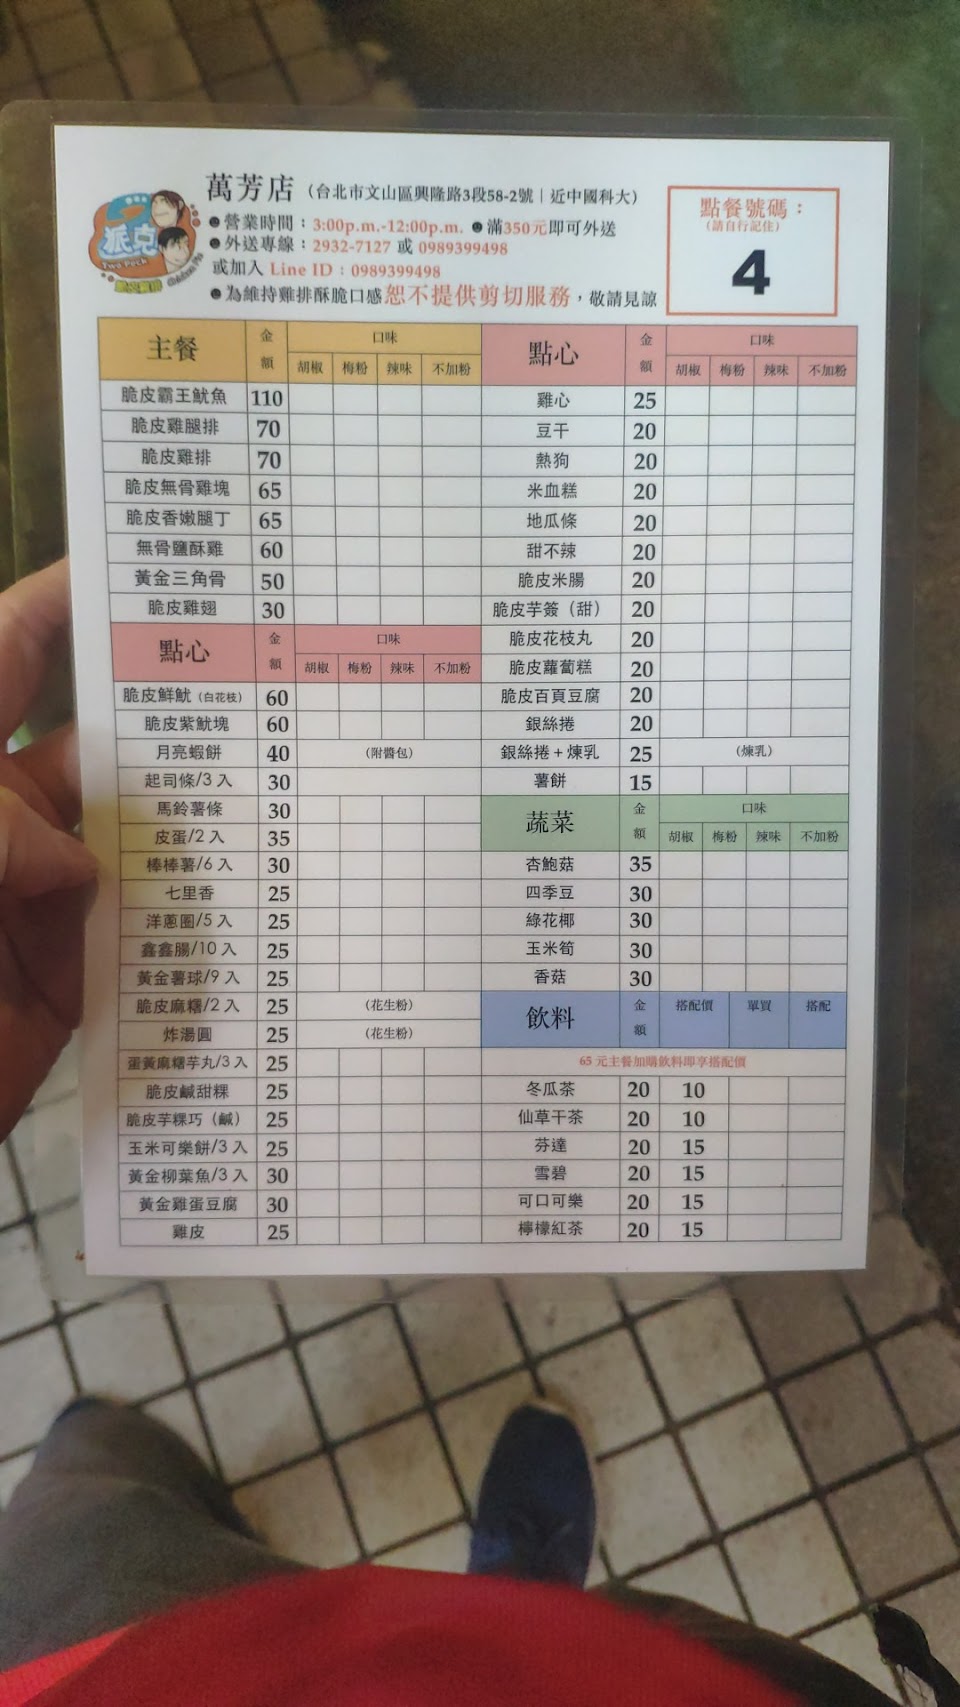 派克
Two Peck
脆皮雞排
萬芳店（台北市文山區興隆路3段58-2號｜近中國科大）
●營業時間：3:00p.m.-12:00p.m. ●滿350元即可外送
●外送專線：2932-7127 或 0989399498
或加入 Line ID：0989399498
●為維持雞排酥脆口感恕不提供剪切服務，敬請見諒
點餐號碼：
（請自行記住）
4
主餐 金額 口味
胡椒 梅粉 辣味 不加粉
脆皮霸王魷魚 110
脆皮雞腿排 70
脆皮雞排 70
脆皮無骨雞塊 65
脆皮香嫩腿丁 65
無骨鹽酥雞 60
黃金三角骨 50
脆皮雞翅 30
點心 金額 口味
胡椒 梅粉 辣味 不加粉
脆皮鮮魷（白花枝） 60
脆皮紫魷塊 60
月亮蝦餅 40 （附醬包）
起司條/3入 30
馬鈴薯條 30
皮蛋/2入 35
棒棒薯/6入 30
七里香 25
洋蔥圈/5入 25
鑫鑫腸/10入 25
黃金薯球/9入 25
脆皮麻糬/2入 25 （花生粉）
炸湯圓 25 （花生粉）
蛋黃麻糬芋丸/3入 25
脆皮鹹甜粿 25
脆皮芋粿巧（鹹） 25
玉米可樂餅/3入 25
黃金柳葉魚/3入 30
黃金雞蛋豆腐 30
雞皮 25
點心 金額 口味
胡椒 梅粉 辣味 不加粉
雞心 25
豆干 20
熱狗 20
米血糕 20
地瓜條 20
甜不辣 20
脆皮米腸 20
脆皮芋簽（甜） 20
脆皮花枝丸 20
脆皮蘿蔔糕 20
脆皮百頁豆腐 20
銀絲捲 20
銀絲捲＋煉乳 25 （煉乳）
薯餅 15
蔬菜 金額 口味
胡椒 梅粉 辣味 不加粉
杏鮑菇 35
四季豆 30
綠花椰 30
玉米筍 30
香菇 30
飲料 金額 搭配價 單買 搭配
65元主餐加購飲料即享搭配價
冬瓜茶 20 10
仙草干茶 20 10
芬達 20 15
雪碧 20 15
可口可樂 20 15
檸檬紅茶 20 15